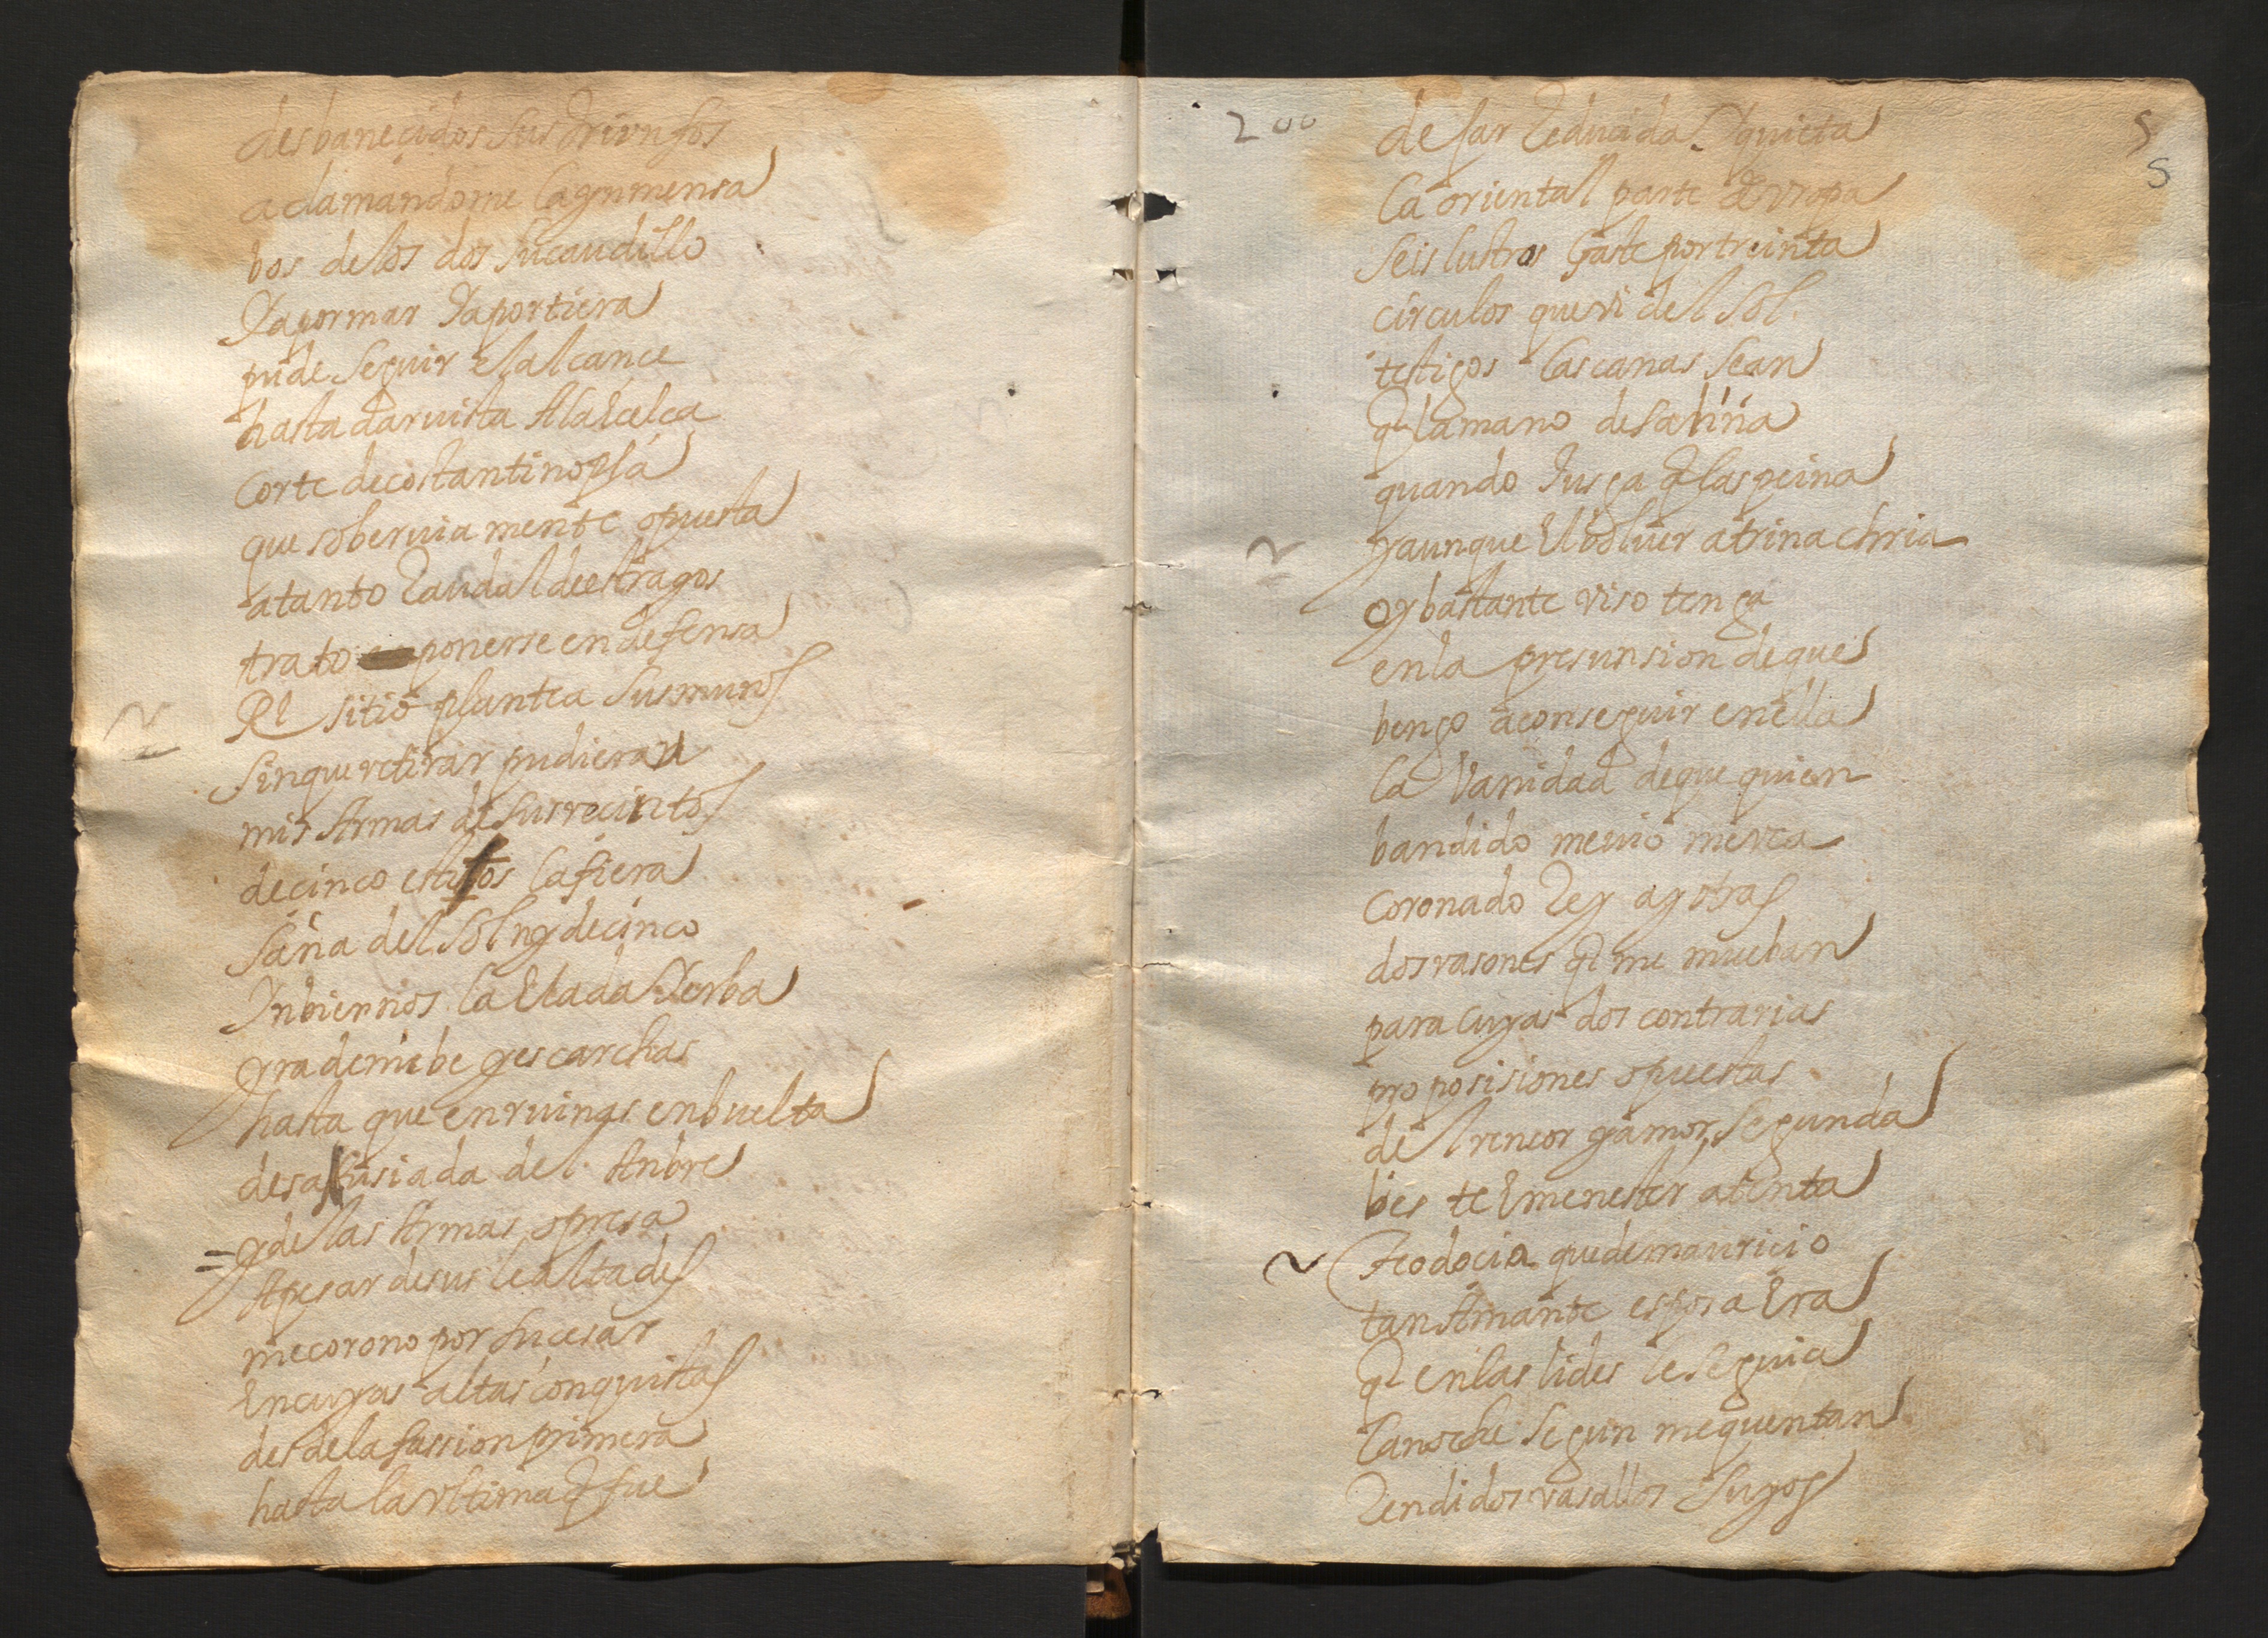 desbanecidos sus triunfos
aclamandome la ynmensa
bos delos dos su caudillo
Ya por mar Ya por tierra
pude seguir el alcance
hasta dar vista A la Ecelça
corte de costantinopla
que soberuia mente opuesta
a tanto Raudal de estragos
trato ponerse en defensa
El sitio plantea sus muros
sin que retirar pudieran
mis Armas de sus recintos
de cinco estitos la fiera
saña del sol ny de cinco
Ynbiernos la Elada Yerba
yra de niebe y escarchas
hasta que en ruinas enbuelta
desafusiada del Anbre
y de las Armas opresa
A pesar de sus lealtades
me corono por su cesar
En cuyas altas conquistas
desde la facsion primera
hasta la vltima q fue
200
5
5
desar Reducida Y quieta
la oriental parte de vropa
seis lustros gaste por treinta
circulos que vi del sol
testigos las canas sean
q la mano de saliña
quando Jusga q las peina
y aunque El bolver a trinachria
oy bastante viso tenga
en la presunsion de que
bengo a conseguir en ella
la Vanidad de que quien
bandido me vio me vea
coronado Rey ay otras
dos rasones q me mueban
para cuyas dos contrarias
proposisiones opuestas
del rencor y amor, segunda
bes te E menester atenta
Teodocia que de mauricio
tan Amante esposa Era
q en las lides le seguia
la noche segun me quentan
Rendidos vasallos suyos